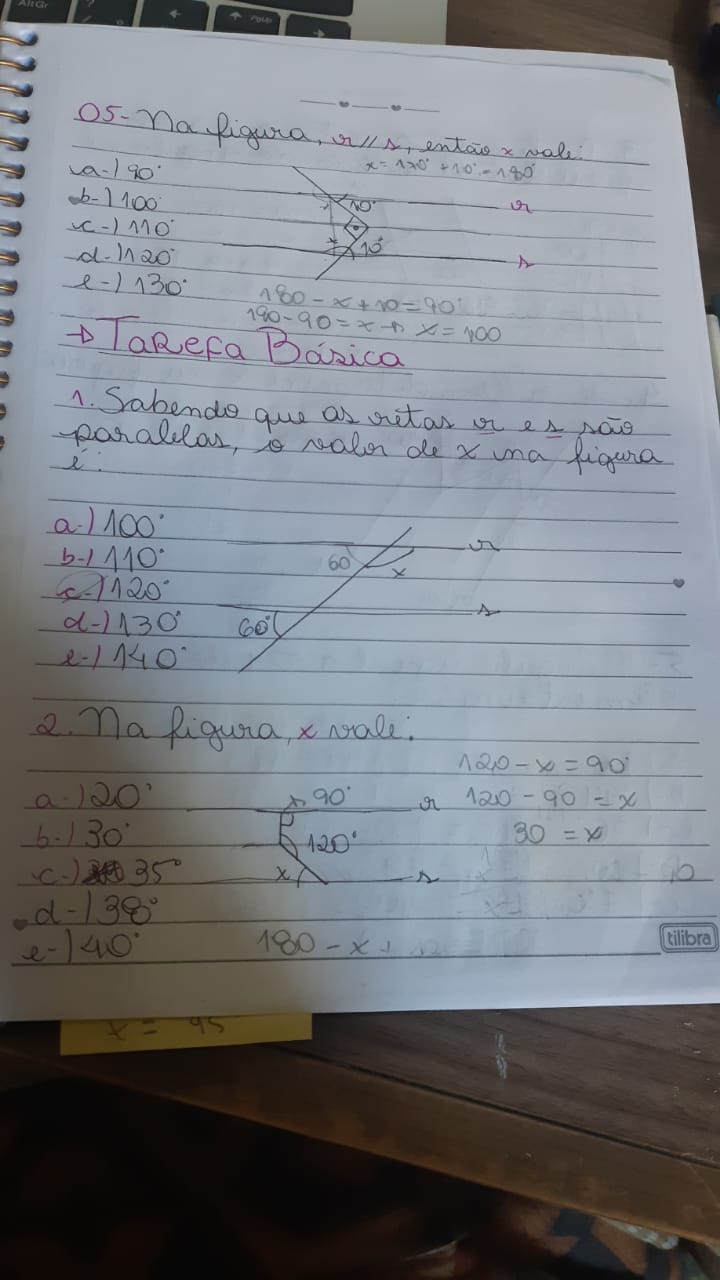 05- Na figura, r//s, então x vale:
x = 170° + 10° = 180°
a-) 90°
b-) 100°
c-) 110°
d-) 120°
e-) 130°
10° r
x 10° s
180 - x + 10 = 90°
190 - 90 = x → x = 100
→ Tarefa Básica
1. Sabendo que as retas r e s são
paralelas, o valor de x na figura
é:
a-) 100°
b-) 110°
c-) 120°
d-) 130°
e-) 140°
60 x r
60° s
2. Na figura, x vale:
120 - x = 90°
120 - 90 = x
30 = x
a-) 20°
b-) 30°
c-) 35°
d-) 38°
e-) 40°
90° r
120°
x s
180 - x +
tilibra
x = 95
AltGr
PgUp